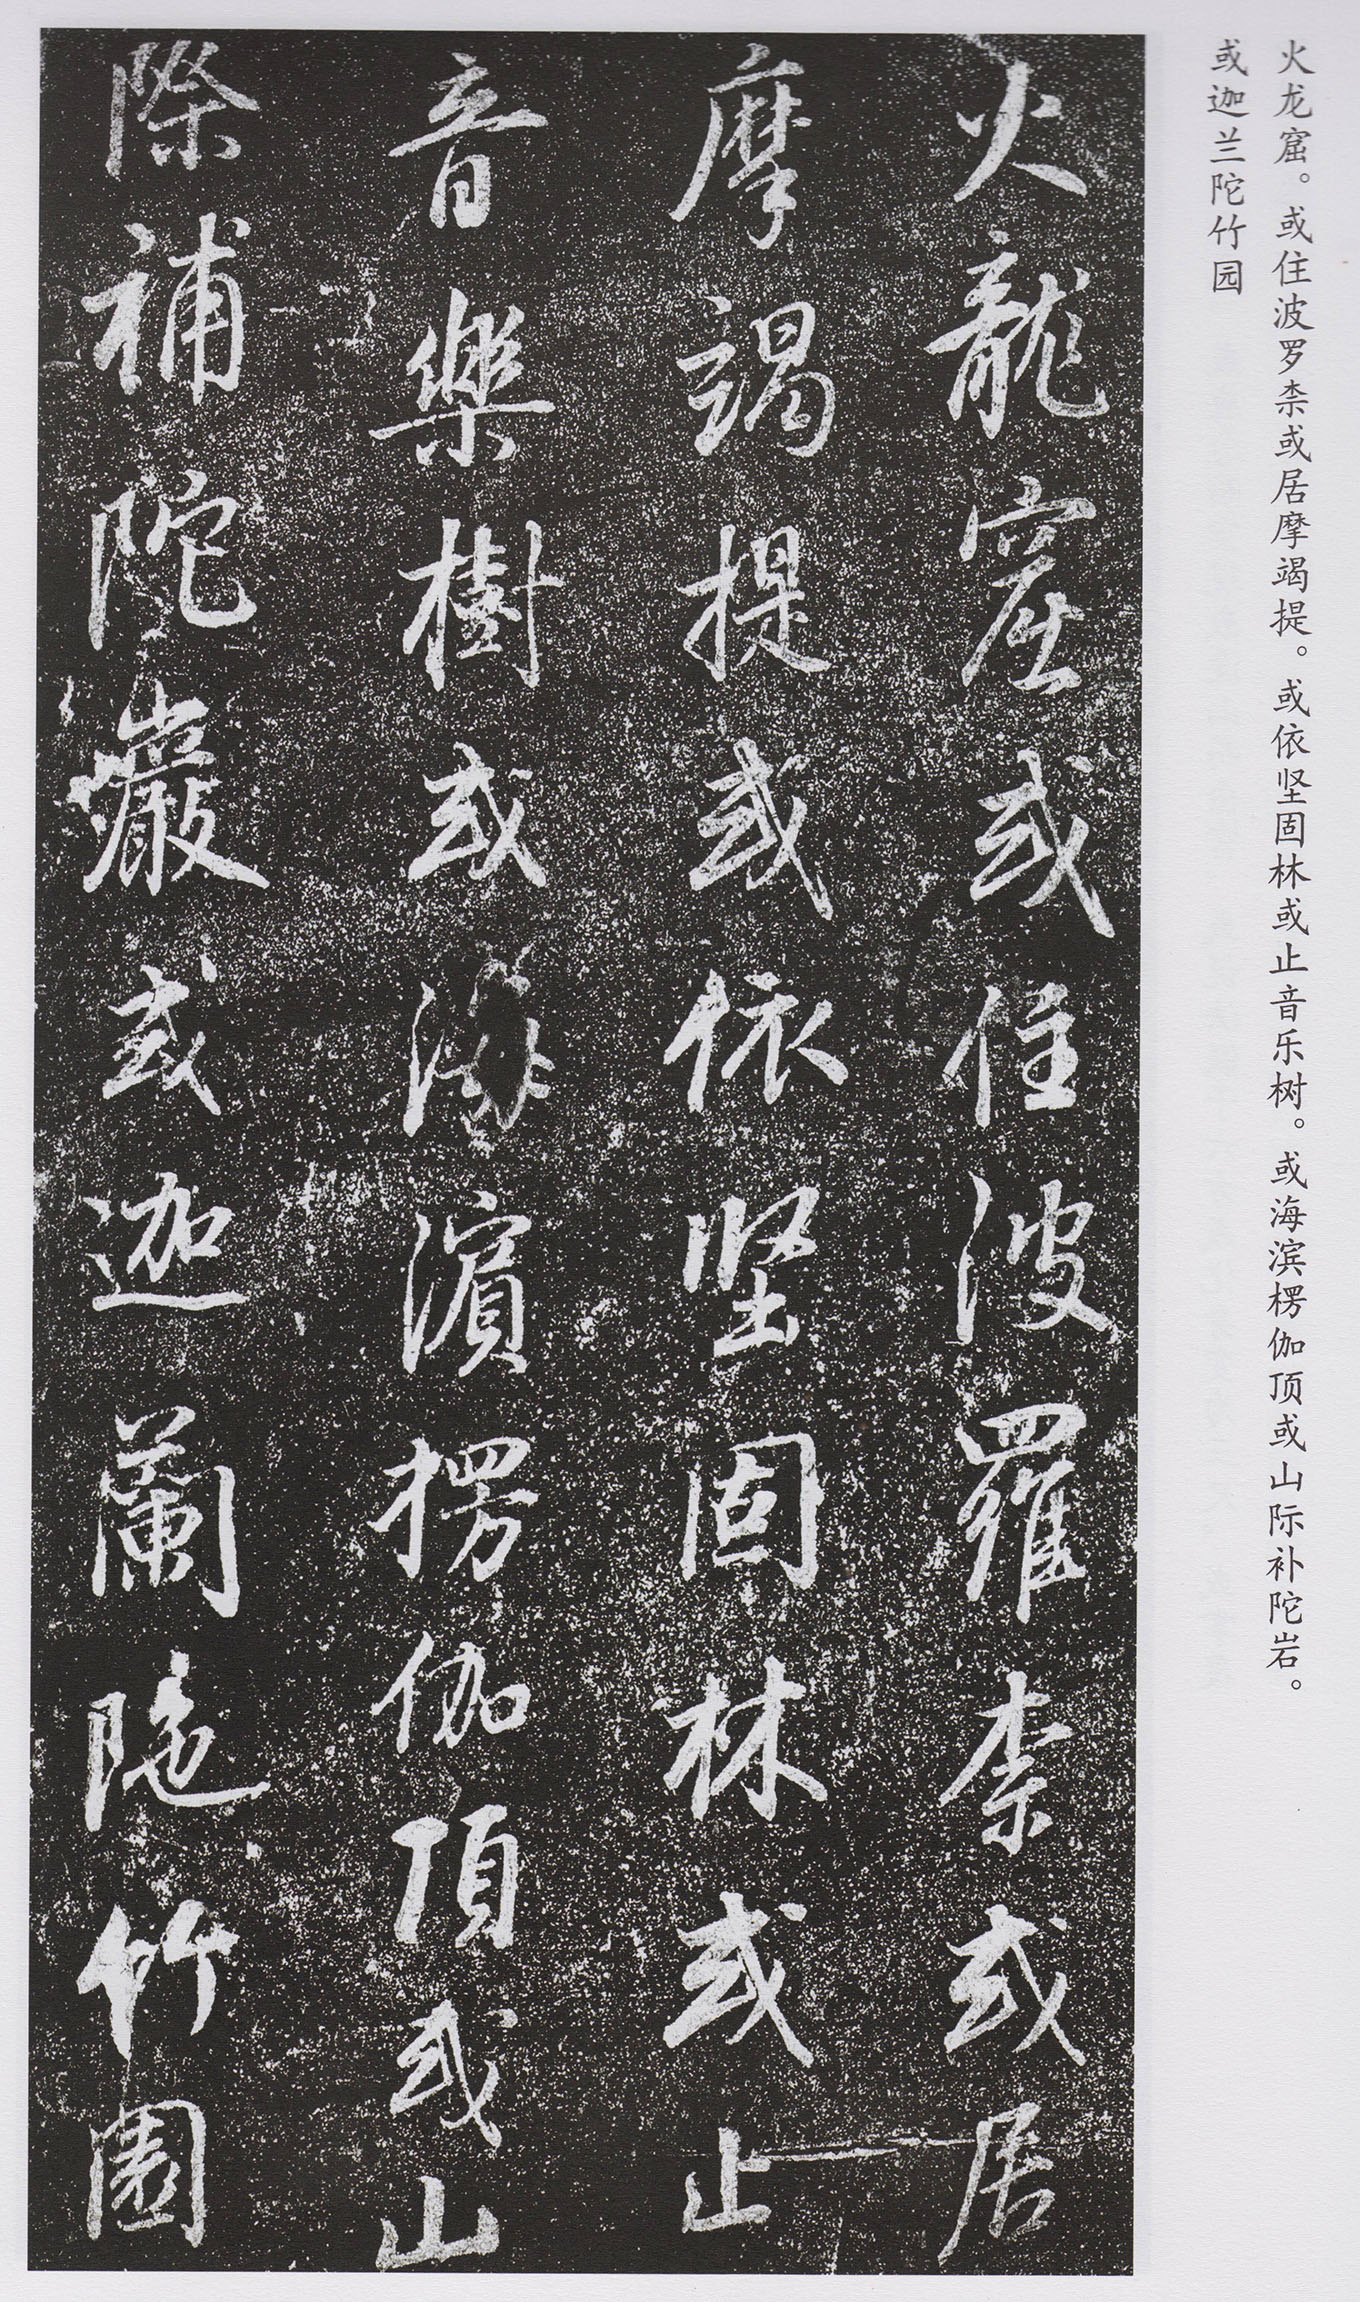 火龙窟。或住波罗柰或居摩竭提。或依坚固林或止音乐树。或海滨楞伽顶或山际补陀岩。
或迦兰陀竹园
火龍窟或住波羅柰或居
摩竭提或依堅固林或止
音樂樹或海濱楞伽頂或山
際補陀巖或迦蘭陁竹園